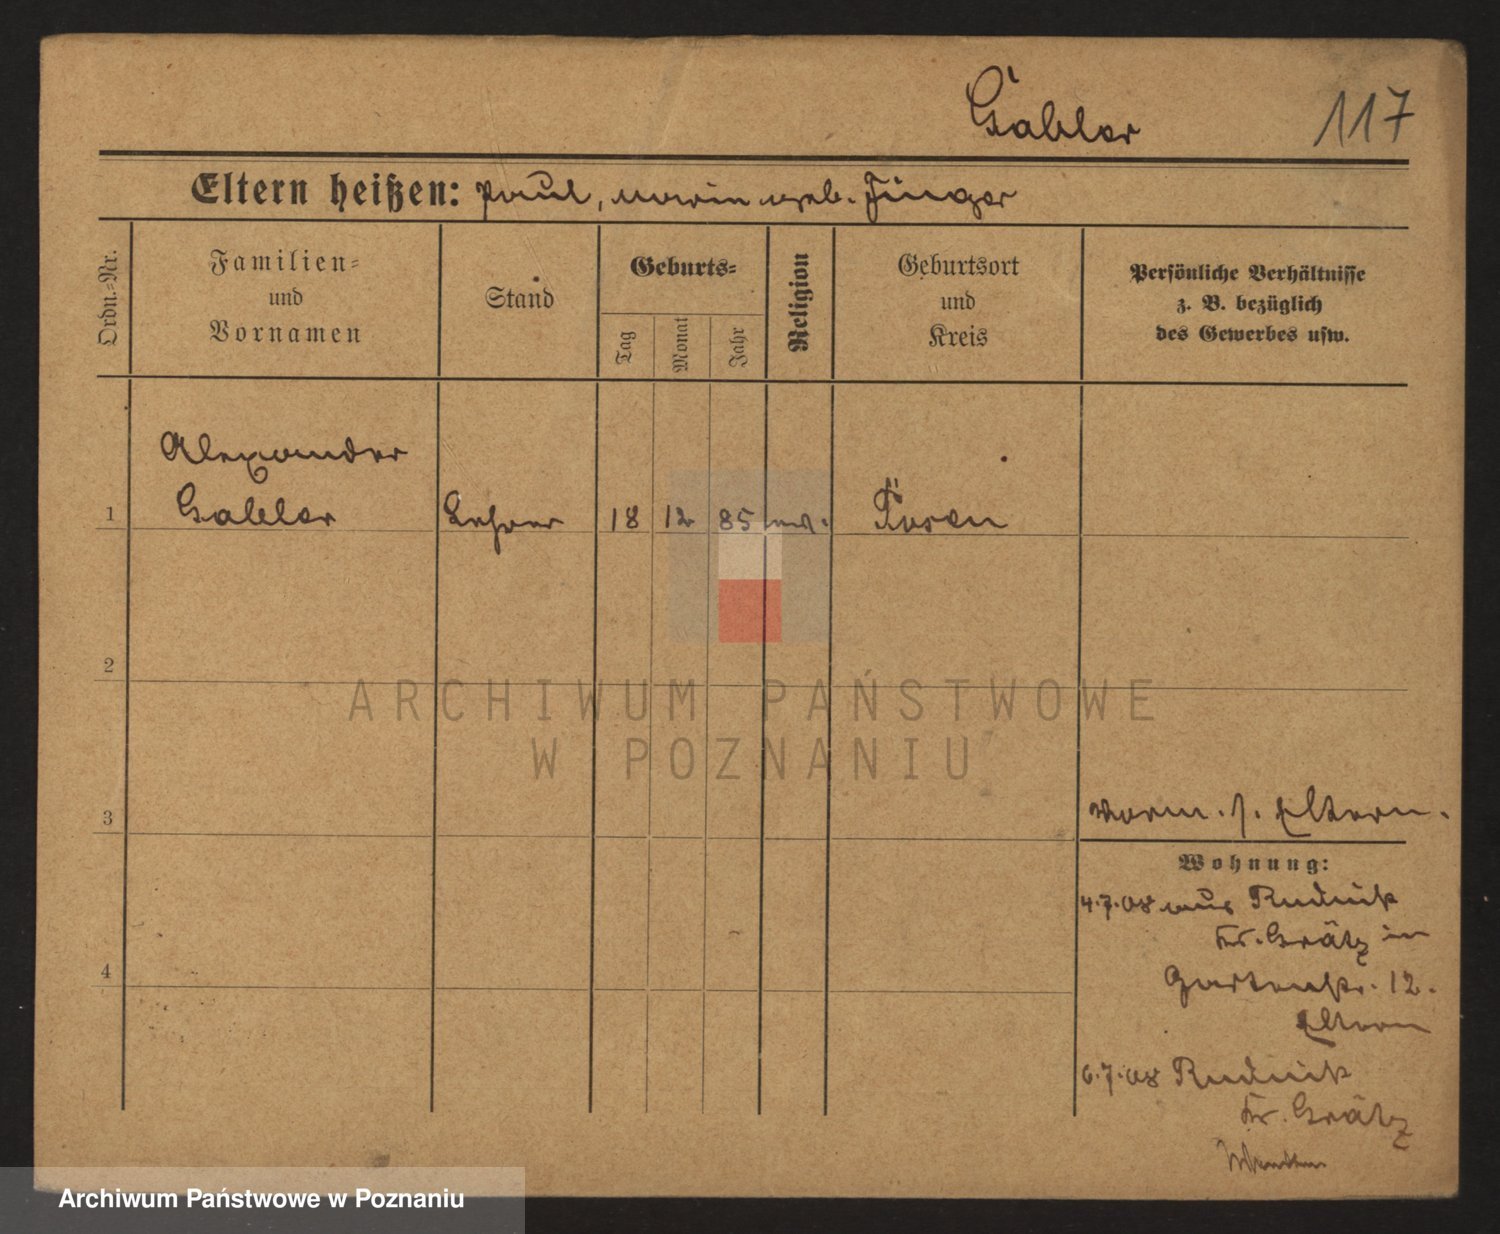 Gabler 117
Eltern heißen: Paul, Maria geb. Jünger
Ordn.-Nr.
Familien-
und
Vornamen
Stand
Geburts-
Tag
Monat
Jahr
Religion
Geburtsort
und
Kreis
Persönliche Verhältnisse
z. B. bezüglich
des Gewerbes usw.
Alexander
1 Gabler Lehrer 18 12 85 Posen
2
ARCHIWUM PAŃSTWOWE
W POZNANIU
3 Vorm. s. Eltern.
Wohnung:
4.7.08 aus Rudnik
Kr. Grätz in
4 Gartenstr. 12.
Eltern
6.7.08 Rudnik
Kr. Grätz
Archiwum Państwowe w Poznaniu